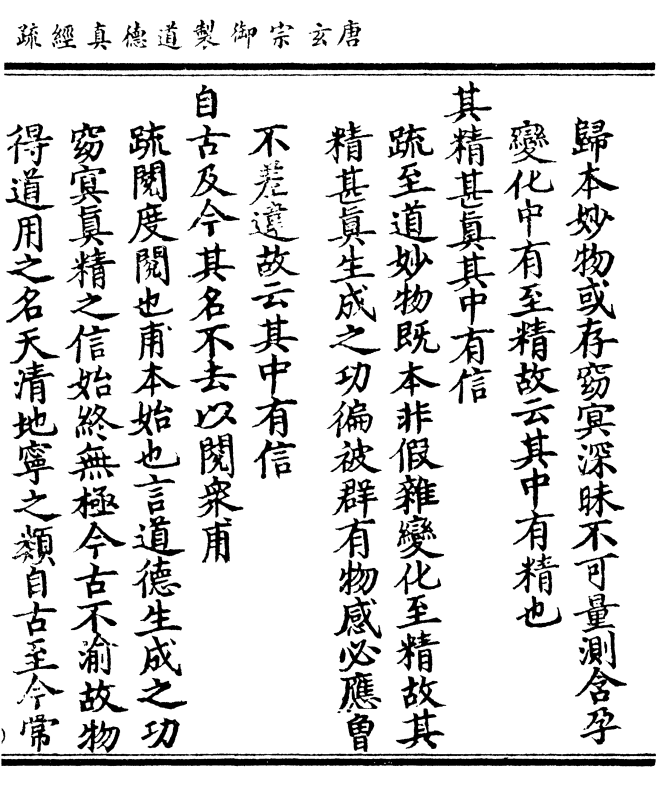 唐玄宗御製道德真經疏
歸本妙物或存窈冥深昧不可量測含孕
變化中有至精故云其中有精也
其精甚眞其中有信
疏至道妙物既本非假雜變化至精故其
精甚眞生成之功徧被群有物感必應曽
不差違故云其中有信
自古及今其名不去以閱衆甫
疏閱度閱也甫本始也言道德生成之功
窈冥眞精之信始終無極今古不渝故物
得道用之名天清地寧之類自古至今常